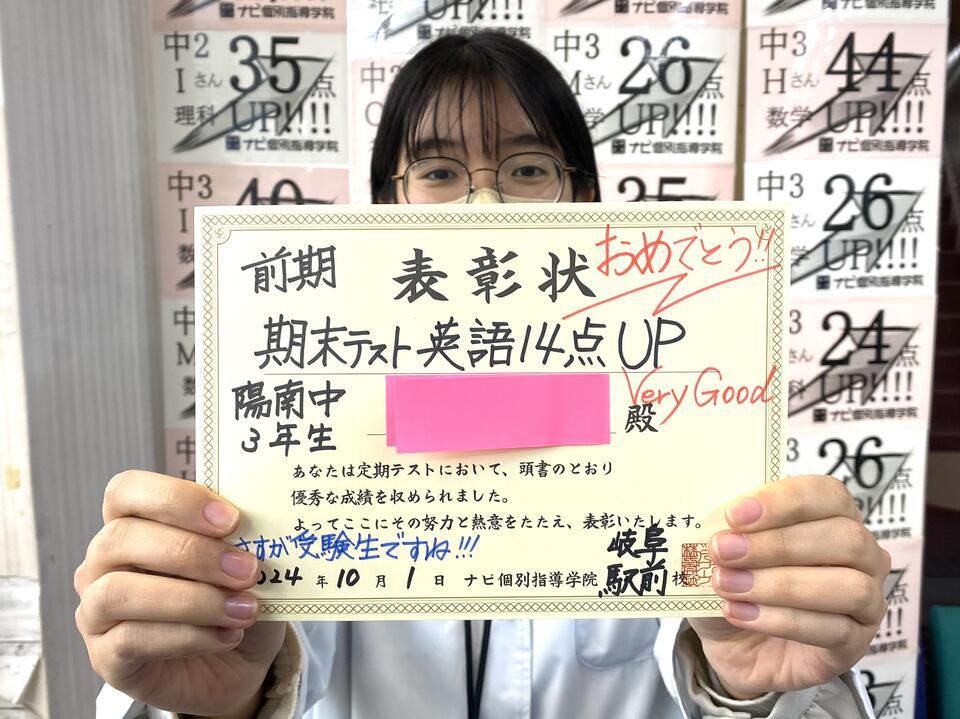 前期 表彰状 おめでとう!!
期末テスト英語14点UP
Very Good
陽南中
3年生
殿
あなたは定期テストにおいて、頭書のとおり
優秀な成績を収められました。
よってここにその努力と熱意をたたえ、表彰いたします。
さすが受験生ですね!!!
2024年10月1日 ナビ個別指導学院 岐阜駅前校
UP!!!
ナビ個別指導学院
ナビ個別指導学院
中2
Iさん
理科
35点
UP!!!!
ナビ個別指導学院
中3
Mさん
26点
UP!!!!
ナビ個別指導学院
中3
Hさん
数学
44点
UP!!!!
ナビ個別指導学院
中3
I
数
中3
さん
26点
UP!!!!
ナビ個別指導学院
24点
UP!!!!
ナビ個別指導学院
26点
UP!!!!
点